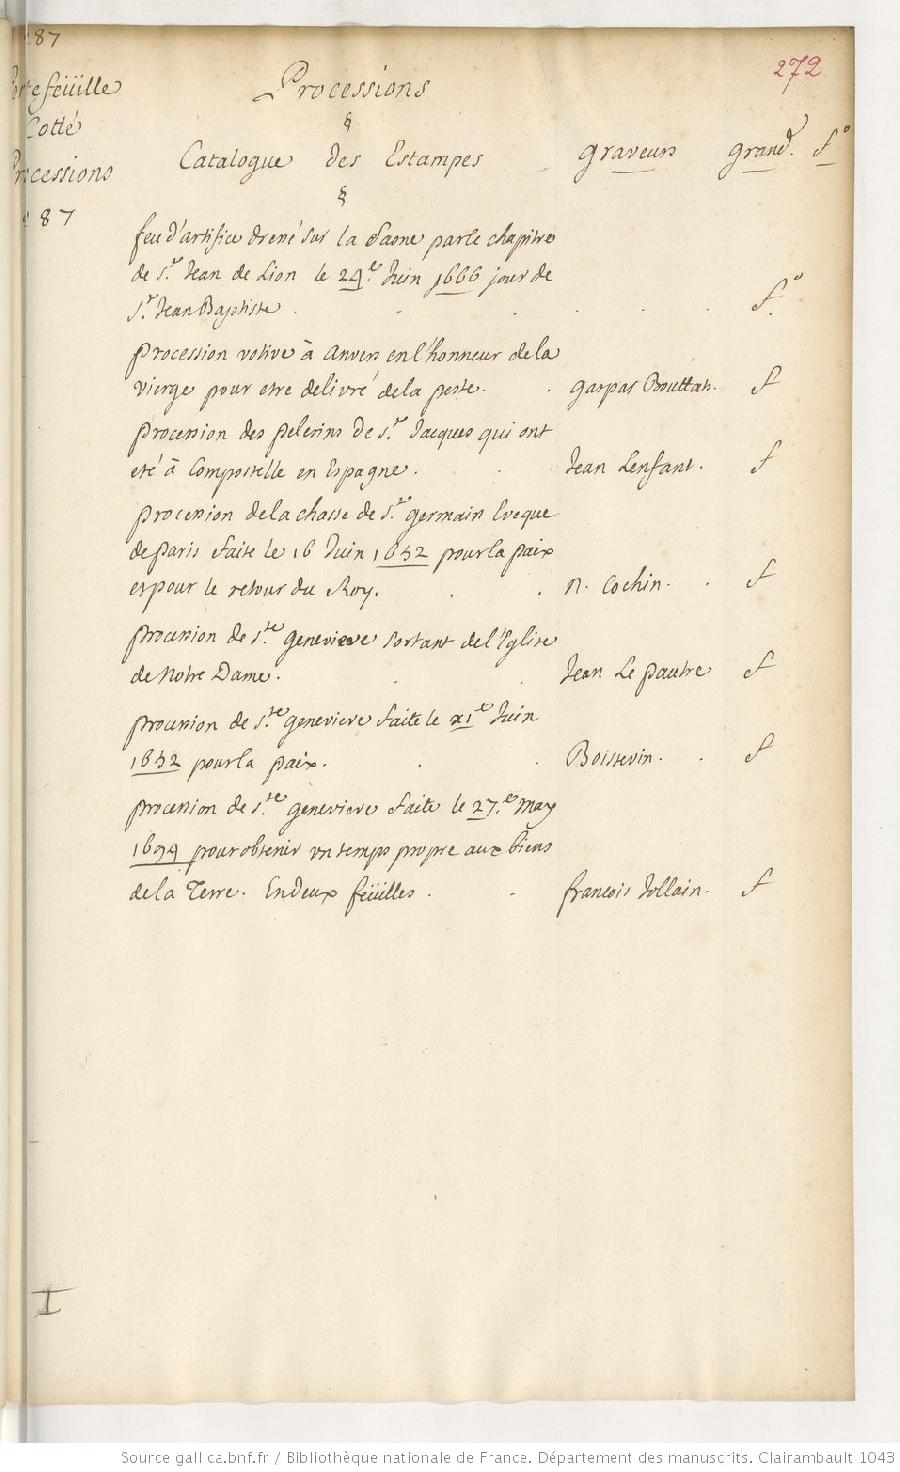 87
272
Portefeüille
Cotté
Processions
87
Processions
§
Catalogue des Estampes graveurs grandr. fo
§
feu d'artifice dressé sur la Saone par le chapitre
de St. Jean de Lion le 24e. Juin 1666 jour de
St. Jean Baptiste . . . . . . fo.
procession votive à Anvers en l'honneur de la
vierge pour etre delivré de la peste. . gaspar Bouttats. f
procession des pelerins de St. Jacques qui ont
eté à Compostelle en Espagne. . Jean Lenfant. f
procession de la chasse de St. germain Eveque
de paris faite le 16 Juin 1652 pour la paix
et pour le retour du Roy. . . N. Cochin. . f
procession de Ste. genevieve sortant de l'Eglise
de Nôtre Dame. . . Jean Le pautre f
procession de Ste. genevieve faite le XIe Juin
1652 pour la paix. . . Boissevin. . f
procession de Ste. genevieve faite le 27e. may
1694 pour obtenir un temps propre aux biens
de la Terre. En deux feüilles . . francois Jollain. f
I
Source gallica.bnf.fr / Bibliothèque nationale de France. Département des manuscrits. Clairambault 1043